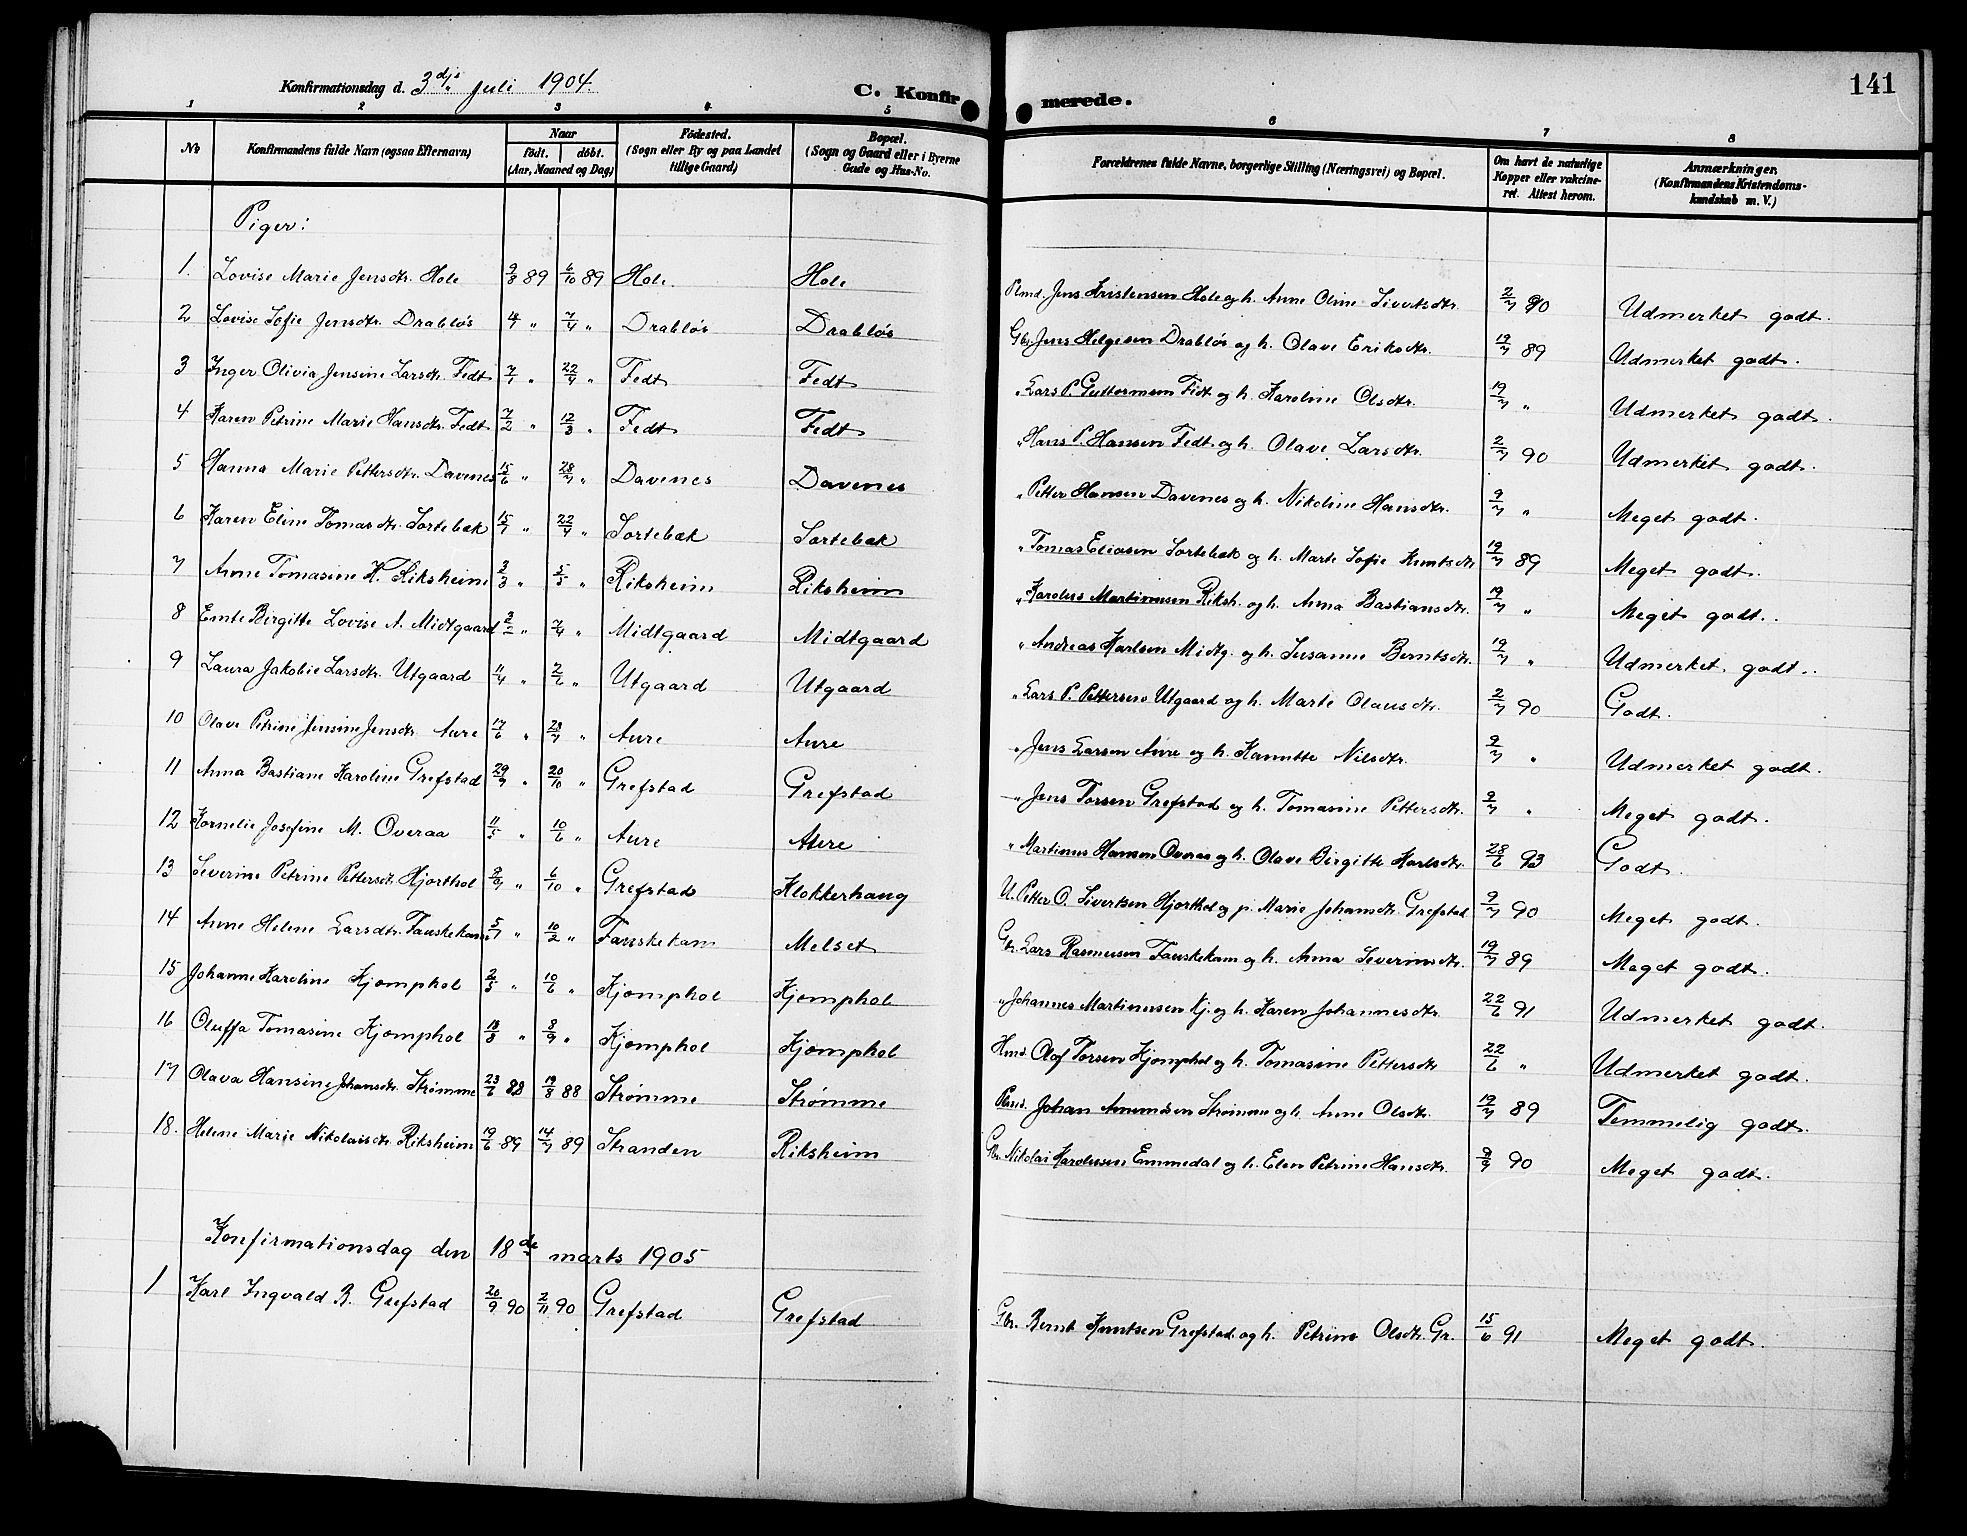 Konfirmationsdag d. 3dje Juli 1904.
C. Konfirmerede.
141
1 2 3 4 5 6 7 8
No
Konfirmandens fulde Navn (ogsaa Efternavn)
Naar
födt. döbt.
(Aar, Maaned og Dag)
Födested.
(Sogn eller By og paa Landet
tillige Gaard)
Bopæl.
(Sogn og Gaard eller i Byerne
Gade og Hus-No.
Forældrenes fulde Navne, borgerlige Stilling (Næringsvei) og Bopæl.
Om havt de naturlige
Kopper eller vakcine-
ret. Attest herom.
Anmærkninger.
(Konfirmandens Kristendoms-
kundskab m. V.)
Piger:
1. Lovise Marie Jensdtr. Hole 9/8 89 6/10 89 Hole. Hole Plmd. Jens Kristensen Hole og h. Anne Oline Sivertsdtr. 2/7 90 Udmerket godt.
2 Lovise Sofie Jensdtr. Drabløs 4/1 " 7/4 " Drabløs Drabløs Gbr. Jens Helgesen Drabløs og h. Olave Eriksdtr. 19/7 89 Udmerket godt.
3 Inger Olivia Jensine Larsdtr. Fedt 7/1 " 22/4 " Fedt Fedt " Lars P. Guttormsen Fedt og h. Karoline Olsdtr. 19/7 " Udmerket godt.
4 Karen Petrine Marie Hansdtr. Fedt 7/2 " 12/3 " Fedt Fedt " Hans P. Hansen Fedt og h. Olave Larsdtr. 2/7 90 Udmerket godt.
5 Hanna Marie Pettersdtr. Davenes 15/6 " 28/7 " Davenes Davenes " Petter Hansen Davenes og h. Nikoline Hansdtr. 9/7 " Meget godt.
6 Karen Eline Tomasdtr. Sortebæk 15/1 " 22/4 " Sortebæk Sortebæk " Tomas Eliasen Sortebæk og h. Marte Sofie Knutsdtr 19/7 89 Meget godt.
7 Anne Tomasine K. Riksheim 3/3 " 5/5 " Riksheim Riksheim " Karolus Martinusen Riksh. og h. Anna Bastiansdtr. 19/7 " Meget godt.
8 Emte Birgitte Lovise A. Midtgaard " 7/4 " Midtgaard Midtgaard " Andreas Karlsen Midtg. og h. Susanne Berntsdtr. 19/7 " Udmerket godt.
9 Laura Jakobie Larsdtr. Utgaard 11/4 " 2/6 " Utgaard Utgaard " Lars P. Pettersen Utgaard og h. Marte Olausdtr. 2/7 90 Godt.
10 Olave Petrine Jensine Jensdtr. Aure 17/6 " 28/7 " Aure Aure " Jens Larsen Aure og h. Kanutte Nilsdtr. 9/7 " Udmerket godt.
11 Anna Bastiane Karoline Grefstad 29/9 " 20/10 " Grefstad Grefstad " Jens Torsen Grefstad og h. Tomasine Pettersdtr. 9/7 " Meget godt.
12 Kornelie Josefine M. Overaa 11/5 " 10/6 " Aure Aure " Martinus Hansen Overaa og h. Olave Birgitte Karlsdtr. 28/6 93 Godt.
13 Severine Petrine Pettersdtr. Hjorthol " 6/10 " Grefstad Klokkerhaug U. Petter O. Sivertsen Hjorthol og p. Marie Johansdtr. Grefstad 9/7 90 Meget godt.
14 Anne Helene Larsdtr. Fauskekam 5/1 " 10/2 " Fauskekam Melset Gbr. Lars Rasmusen Fauskekam og h. Anna Severinsdtr. 19/7 89 Meget godt.
15 Johanne Karoline Kjømphol 2/5 " 10/6 " Kjømphol Kjømphol " Johannes Martinusen Kj. og h. Karen Johannesdtr. 22/6 91 Udmerket godt.
16 Oluffa Tomasine Kjømphol 18/8 " 8/9 " Kjømphol Kjømphol Hmd. Olof Torsen Kjømphol og h. Tomasine Pettersdtr 22/6 " Udmerket godt.
17 Olava Hansine Johansdtr. Strømme 23/6 88 19/8 88 Strømme Strømme Plmd. Johan Amundsen Strømme og h. Anne Olsdtr. 19/7 89 Temmelig godt.
18. Helene Marie Nikolaisdtr. Riksheim 19/6 89 14/7 89 Stranden Riksheim Gbr. Nikolai Karolusen Emmedal og h. Elen Petrine Hansdtr. 9/9 90 Meget godt.
Konfirmationsdag den 18de marts 1905
1 Karl Ingvald B. Grefstad 20/9 90 2/11 90 Grefstad Grefstad Gbr. Bernt Knutsen Grefstad og h. Petrine Olsdtr. Gr. 15/6 91 Meget godt.